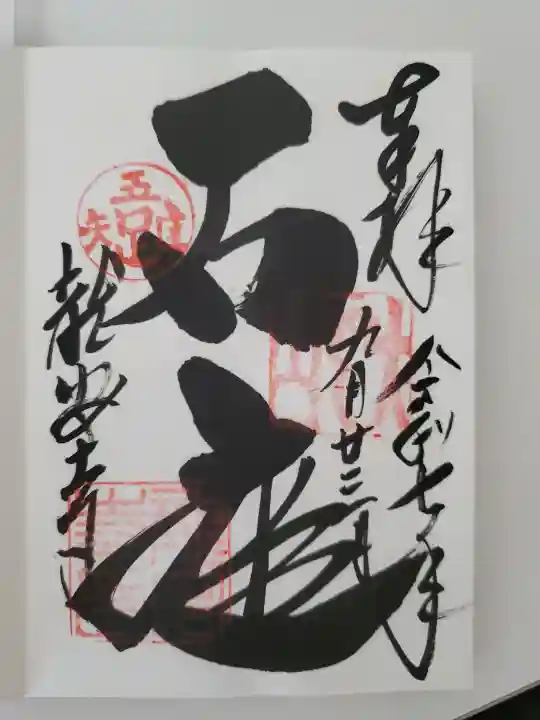 奉拝
令和七年
九月廿三日
石庭
龍安寺
吾唯足知